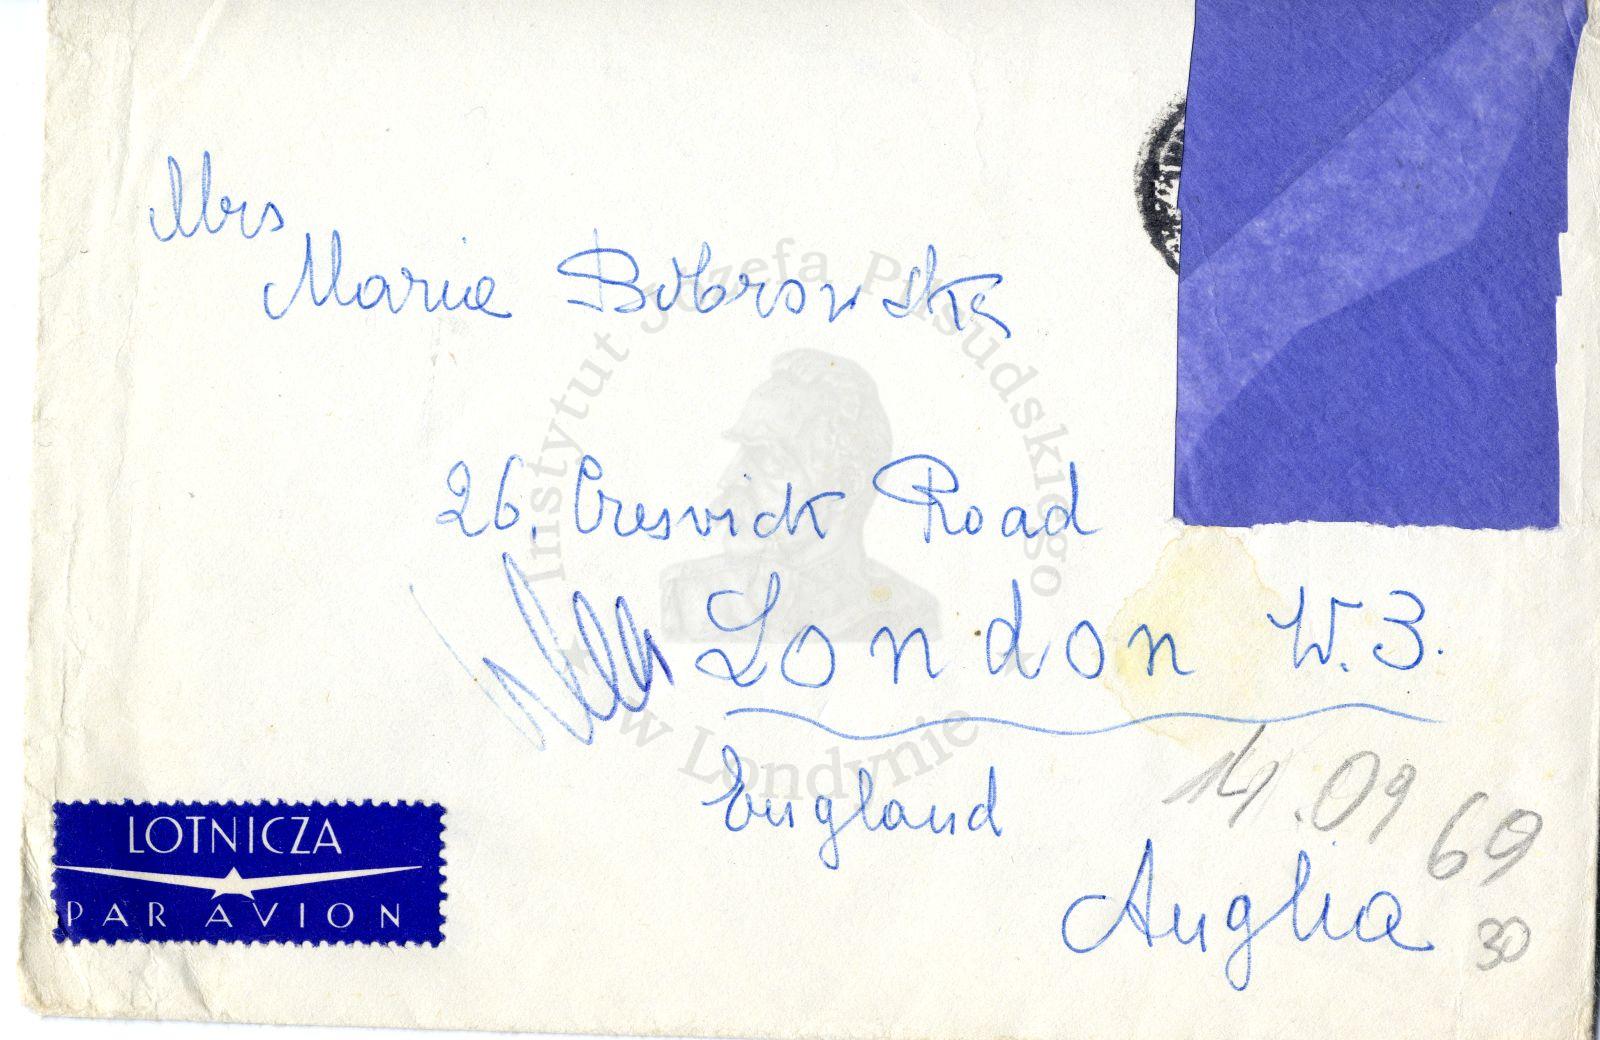 Mrs
Maria Bobrowska
26, Creswick Road
London W.3.
England
Anglia
14.09 69
30
LOTNICZA
PAR AVION
Instytut Józefa Piłsudskiego
w Londynie